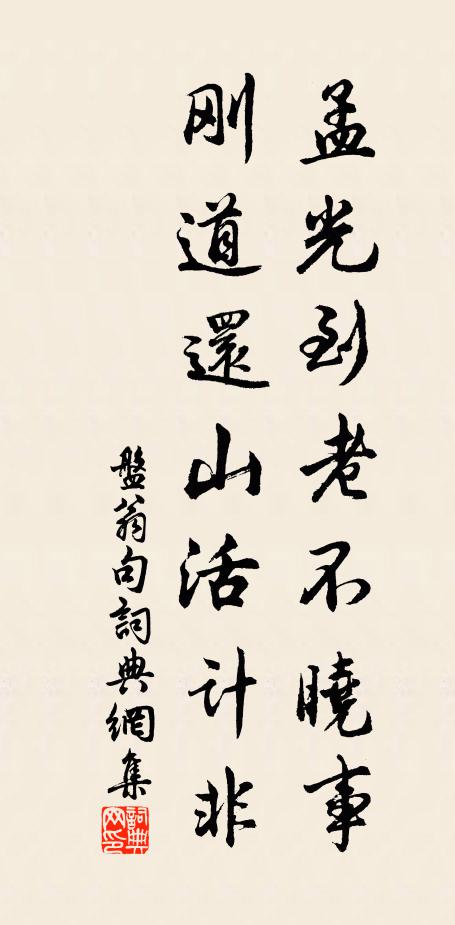 孟光到老不曉事
刚道還山活计非
盤翁句詞典網集
詞典网印